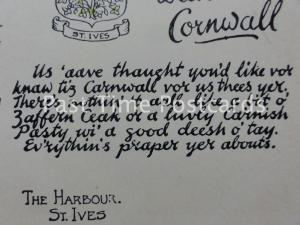 Cornwall
ST. IVES
Us 'aave thaught you'd like vor
knaw tiz Carnwall vor us thees yer.
Ther's nawt 't'all like a bit o'
Zaffern Ceak or a luvly Carnish
Pasty wi' a good deesh o' tay.
Ev'rythin's praper yer abouts.
Past Time Postcards
THE HARBOUR.
ST. IVES